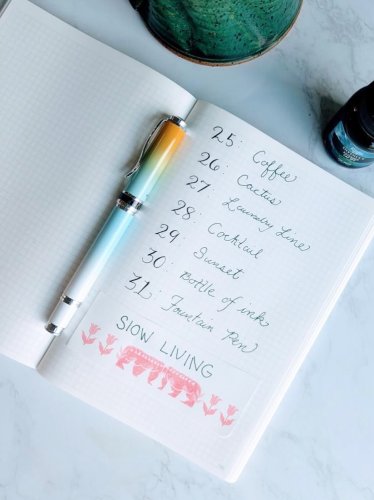 25. Coffee
26. Cactus
27. Laundry Line
28. Cocktail
29. Sunset
30. Bottle of ink
31. Fountain Pen
SLOW LIVING